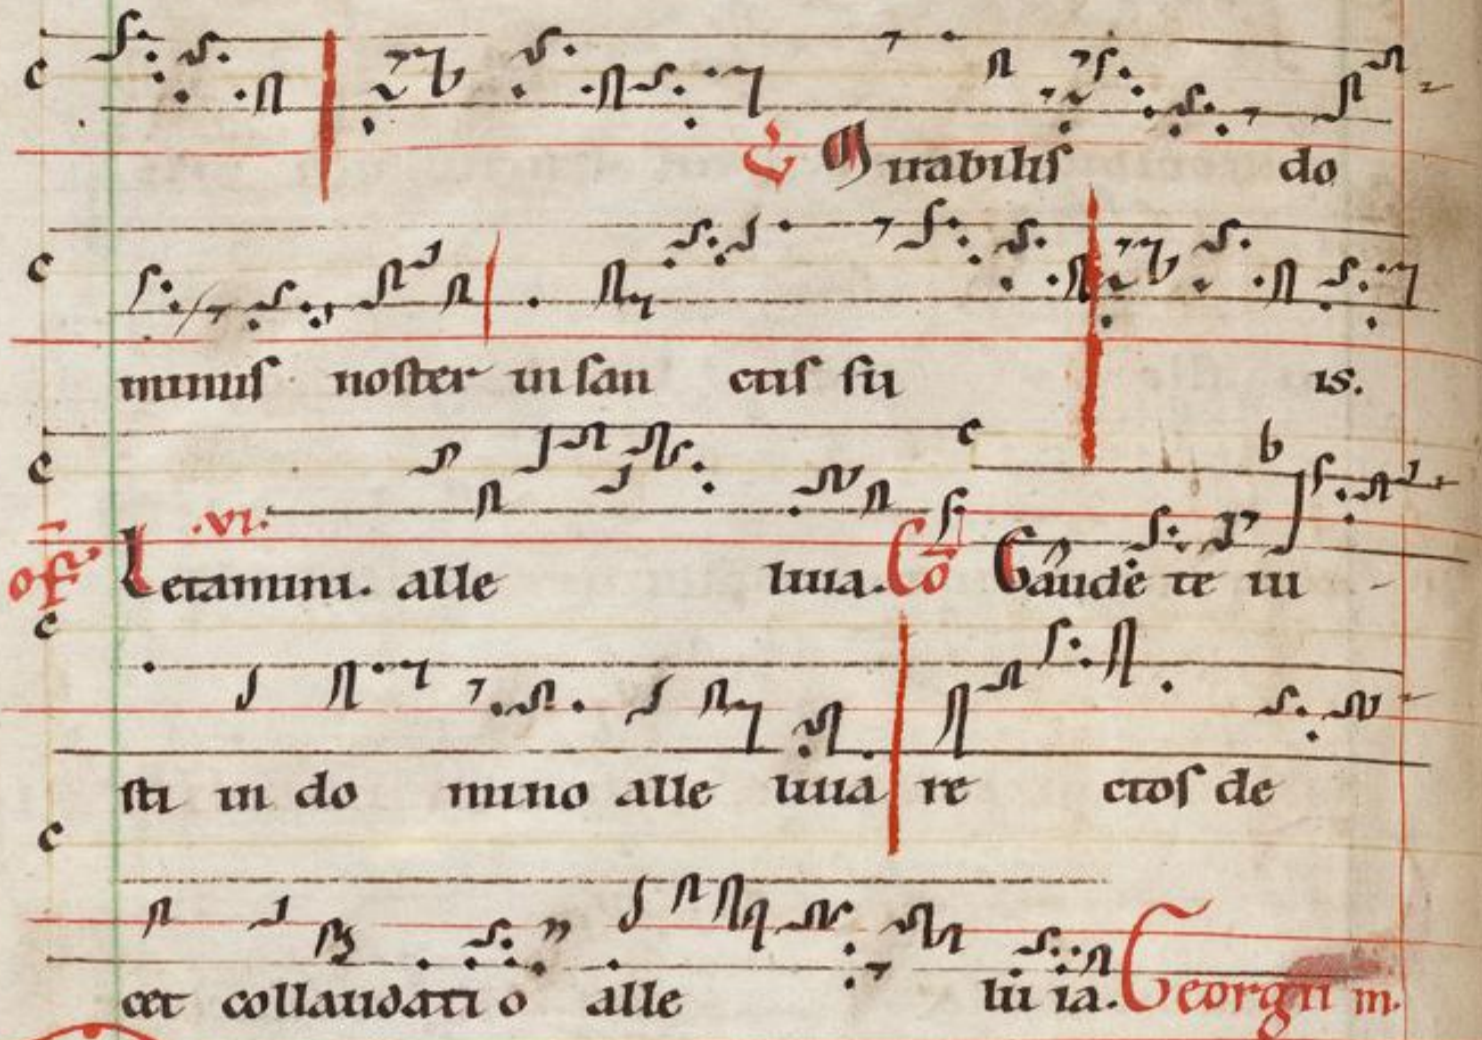 c
℣ Mirabilis do
c
minus noster in san ctis su is.
c c b
of .vi. Letamini. alle luia. Co Gaude te iu -
c
sti in do mino alle luia re ctos de
c
cet collaudati o alle lu ia. Georgii m.